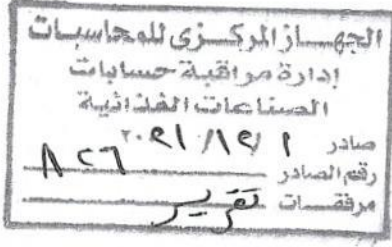 الجهاز المركزى للمحاسبات
إدارة مراقبة حسابات
الصناعات الغذائية
صادر ١ / ١٢ / ٢٠٢١
رقم الصادر ٨٢٦
مرفقات تقرير